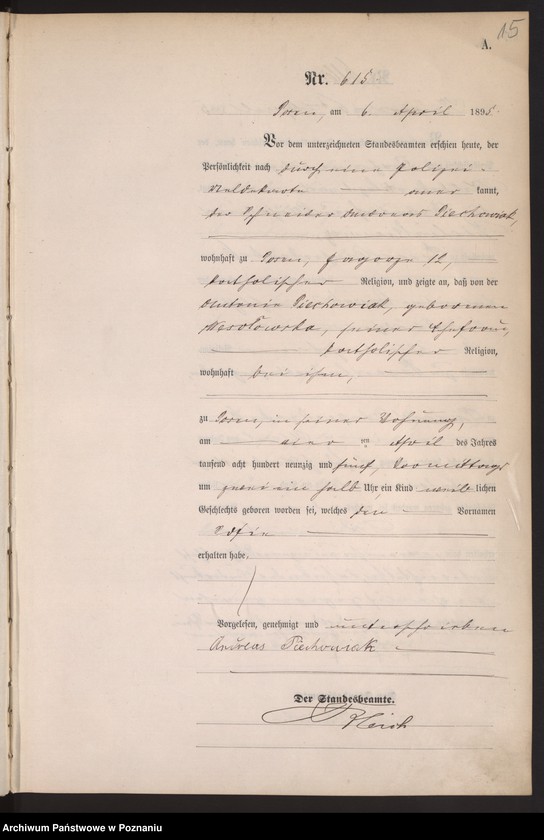 15
A.
Nr. 615
Posen, am 6. April 1895.
Vor dem unterzeichneten Standesbeamten erschien heute, der
Persönlichkeit nach durch eine Polizei-
Meldekarte — aner kannt,
der Schneider Andreas Piechowiak,
wohnhaft zu Posen, Zagorze 12,
katholischer Religion, und zeigte an, daß von der
Antonie Piechowiak, geborenen
Wesołowska, seiner Ehefrau,
katholischer Religion,
wohnhaft bei ihm,
zu Posen, in seiner Wohnung,
am ten April des Jahres
tausend acht hundert neunzig und fünf, Vormittags
um halb Uhr, ein Kind weib lichen
Geschlechts geboren worden sei, welches den Vornamen
erhalten habe.
Vorgelesen, genehmigt und unterschrieben
Andreas Piechowiak
Der Standesbeamte.
Archiwum Państwowe w Poznaniu